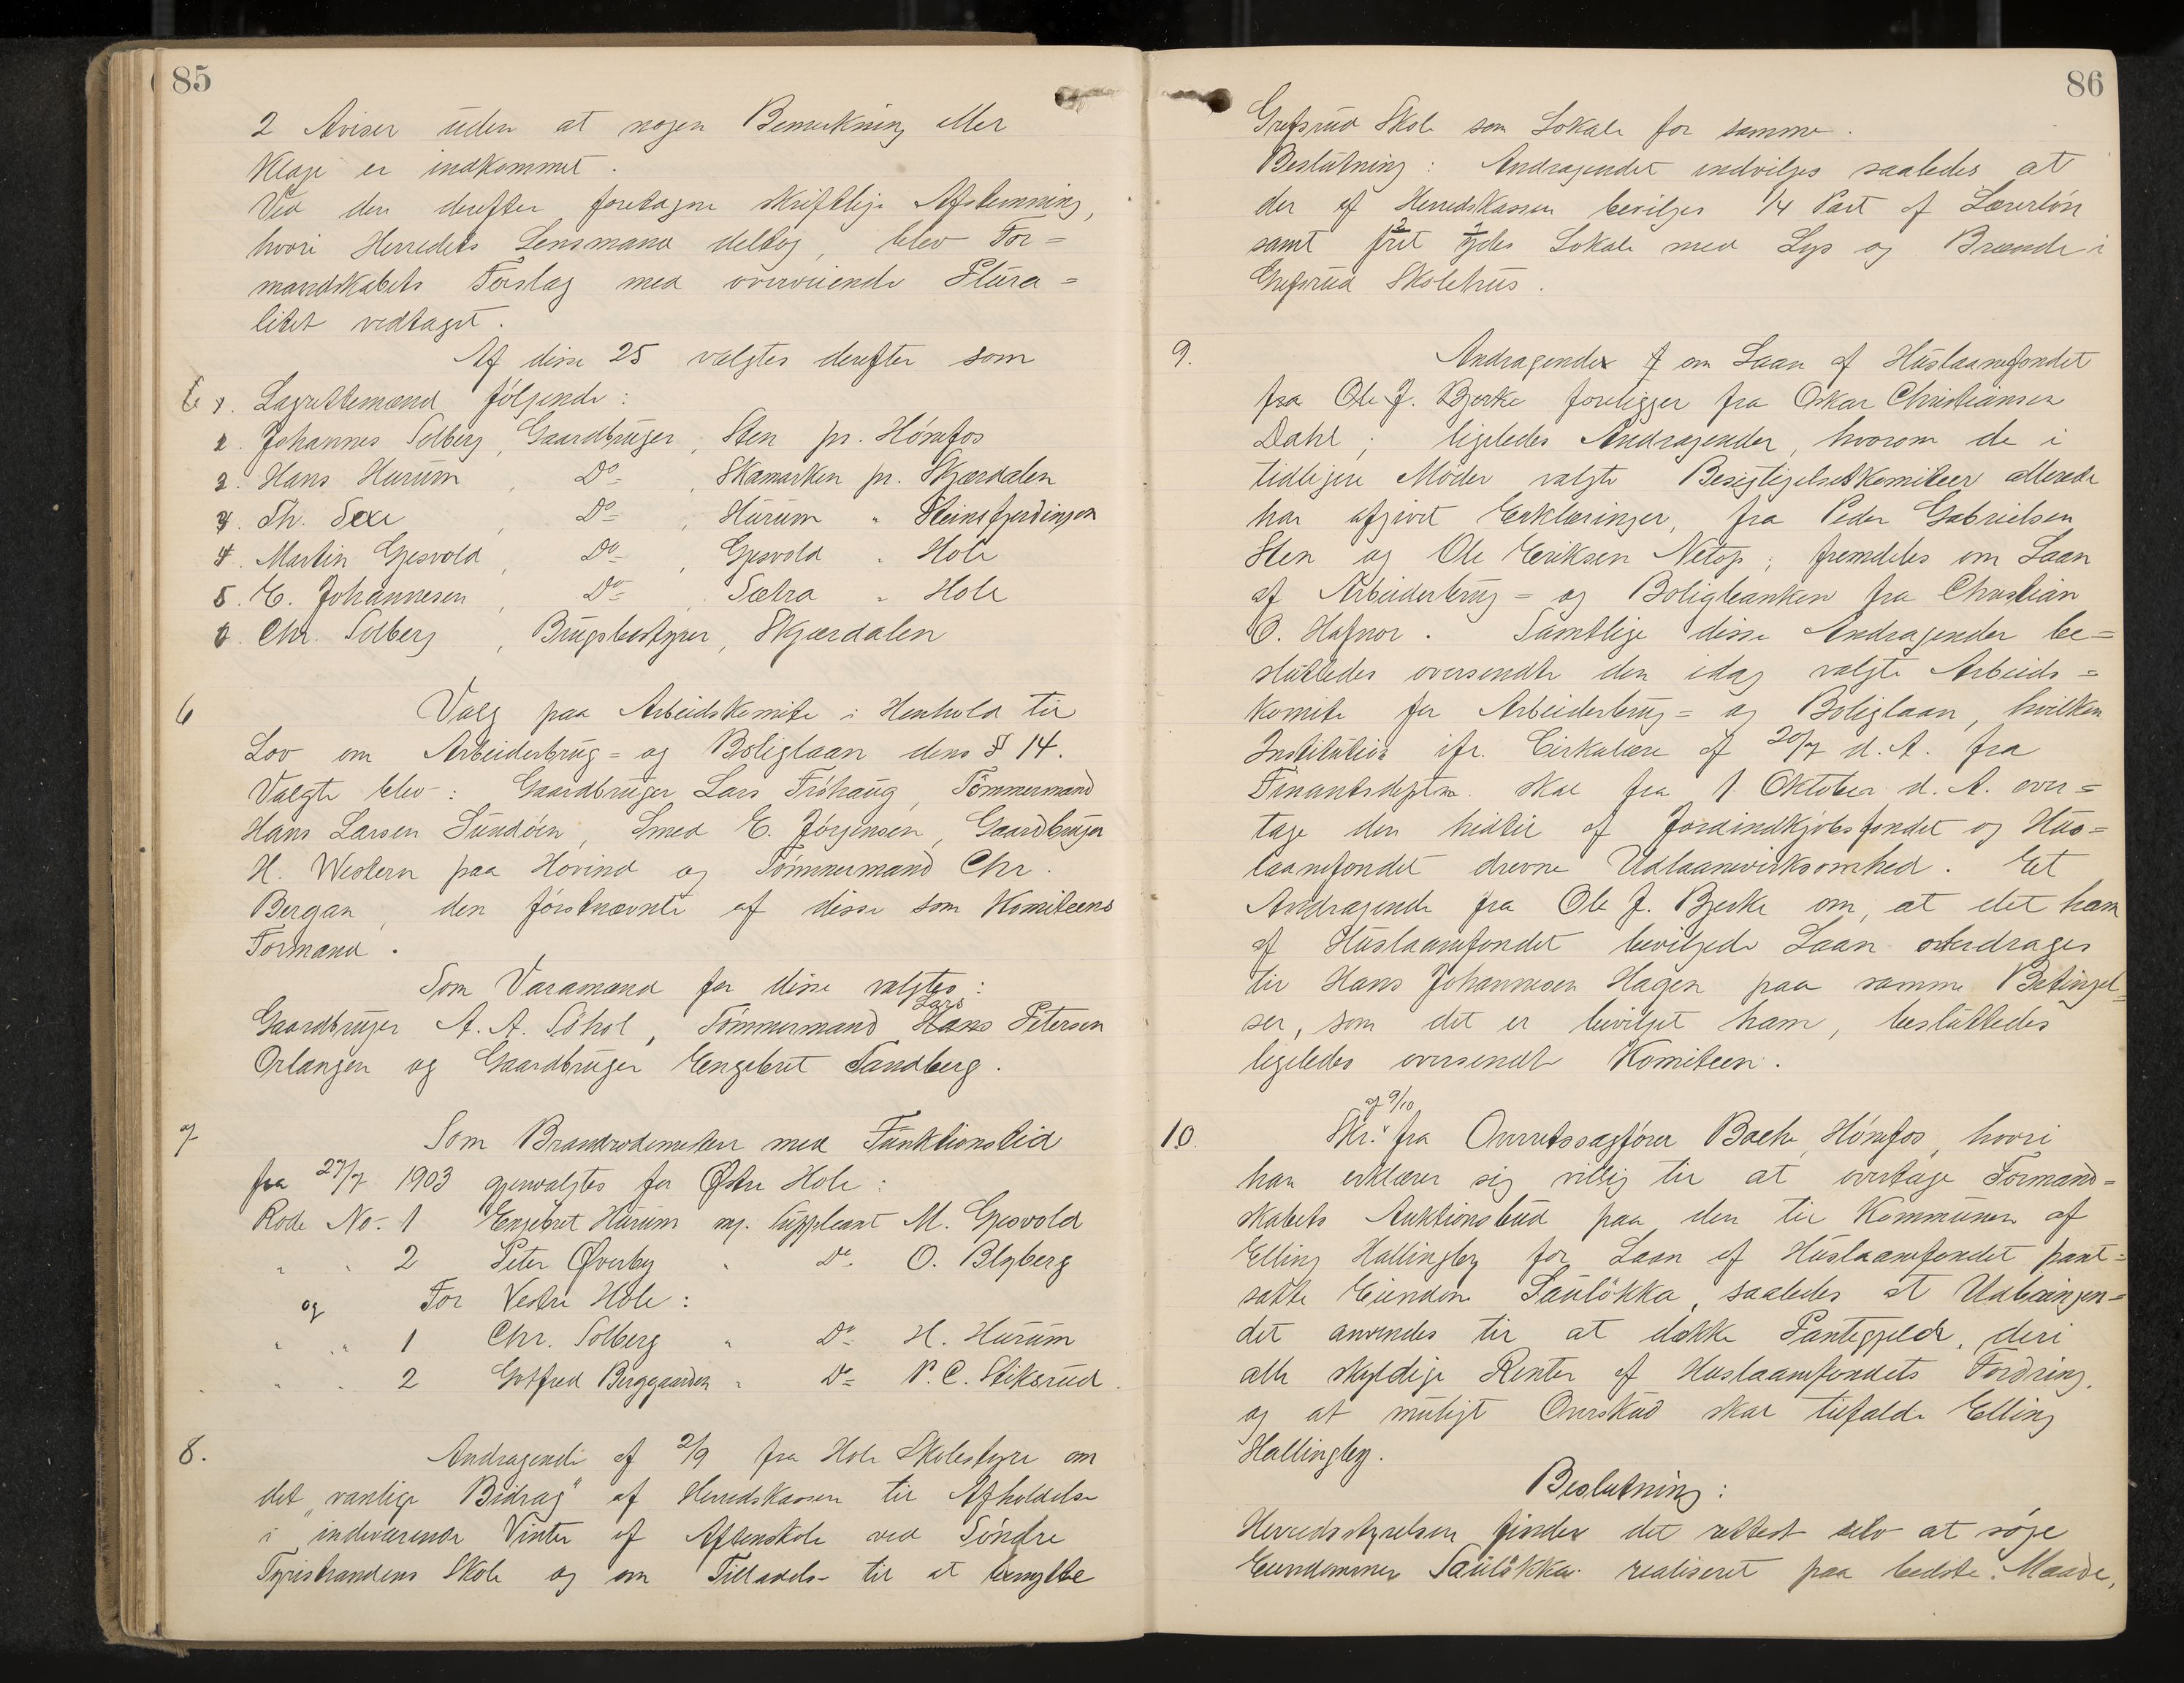 85
2 Aviser uden at nogen Bemerkning eller
Klage er indkommet.
Ved den derefter foretagne skriftlige Afstemning,
hvori Herredets Lensmand deltog, blev For=
mandskabets Forslag med overveiende Plura=
litet vedtaget.
Af disse 25 valgtes derefter som
Lagrettemænd følgende:
1. Johannes Solberg, Gaardbruger, Sten pr. Hønefos
2. Hans Hurum, Do, Skamarken pr. Skjærdalen
3. Th. Sexe, Do, Hurum " Steinsfjerdingen
4. Martin Gjesvold, Do, Gjesvold " Hole
5. E. Johannesen, Do, Sætra " Hole
6. Chr. Solberg, Brugsbestyrer, Skjærdalen
6 Valg paa Arbeidskomite i Henhold til
Lov om Arbeiderbrug= og Boliglaan dens § 14.
Valgte blev: Gaardbruger Lars Frøhaug, Tømmermand
Hans Larsen Sundøen, Smed E. Jørgensen, Gaardbruger
H. Western paa Hovind og Tømmermand Chr.
Bergan, den førstnævnte af disse som Komiteens
Formand.
Som Varamænd for disse valgtes:
Gaardbruger A. A. Søhol, Tømmermand Lars Petersen
Orlangen og Gaardbruger Engebret Sandberg.
7 Som Brandrodemestere med Funktionstid
fra 27/7 1903 gjenvalgtes for Østre Hole:
Rode No. 1 Engebret Hurum m. Suppleant M. Gjesvold
" " 2 Peter Øverby " Do O. Blyberg
og For Vestre Hole:
" " 1 Chr. Solberg " Do H. Hurum
" " 2 Gotfred Berggaarden " Do P. C. Stiksrud
8. Andragende af 2/9 fra Hole Skolestyre om
det "vanlige Bidrag" af Herredskassen til Afholdelse
i indeværende Vinter af Aftenskole ved Søndre
Tyristrandens Skole og om Tilladelse til at benytte
86
Grefsrud Skole som Lokale for samme.
Beslutning: Andragendet indvilges saaledes at
der af Herredskassen bevilges 1/4 Part af Lærerløn
samt frit ydes Lokale med Lys og Brænde i
Grefsrud Skolehus.
9. Andragende om Laan af Huslaanefondet
fra Ole J. Bjerke foreligger fra Oskar Christiansen
Dahl; ligeledes Andragender, hvorom de i
tidligere Møder valgte Besigtigelseskomiteer allerede
har afgivet Erklæringer, fra Peder Gabrielsen
Sten og Ole Eriksen Netop; fremdeles om Laan
af Arbeiderbrug= og Boligbanken fra Christian
O. Hafnor. Samtlige disse Andragender be=
sluttedes oversendte den idag valgte Arbeids=
komite for Arbeiderbrug= og Boliglaan, hvilken
Institution ifr. Cirkulære af 20/7 d. A. fra
Finantsdeptm. skal fra 1 Oktober d. A. over=
tage den hidtil af Jordindkjøbsfondet og Hus=
laanefondet drevne Udlaansvirksomhed. Et
Andragende fra Ole J. Bjerke om, at det ham
af Huslaanefondet bevilgede Laan overdrages
til Hans Johannesen Hagen paa samme Betingel=
ser, som det er bevilget ham, besluttedes
ligeledes oversendt Komiteen.
af 9/10
10. Skr. fra Overretssagfører Bache, Hønefos, hvori
han erklærer sig villig til at overtage Formand=
skabets Auktionsbud paa den til Kommunen af
Elling Hallingby for Laan af Huslaanefondet pant=
satte Eiendom Sauløkka, saaledes at Udbringen=
det anvendes til at dække Pantegjeld, deri
alle skyldige Renter af Huslaanefondets Fordring,
og at muligt Overskud skal tilfalde Elling
Hallingby.
Beslutning:
Herredsstyrelsen finder det rettest selv at søge
Eiendommen Sauløkka realiseret paa bedste Maade,